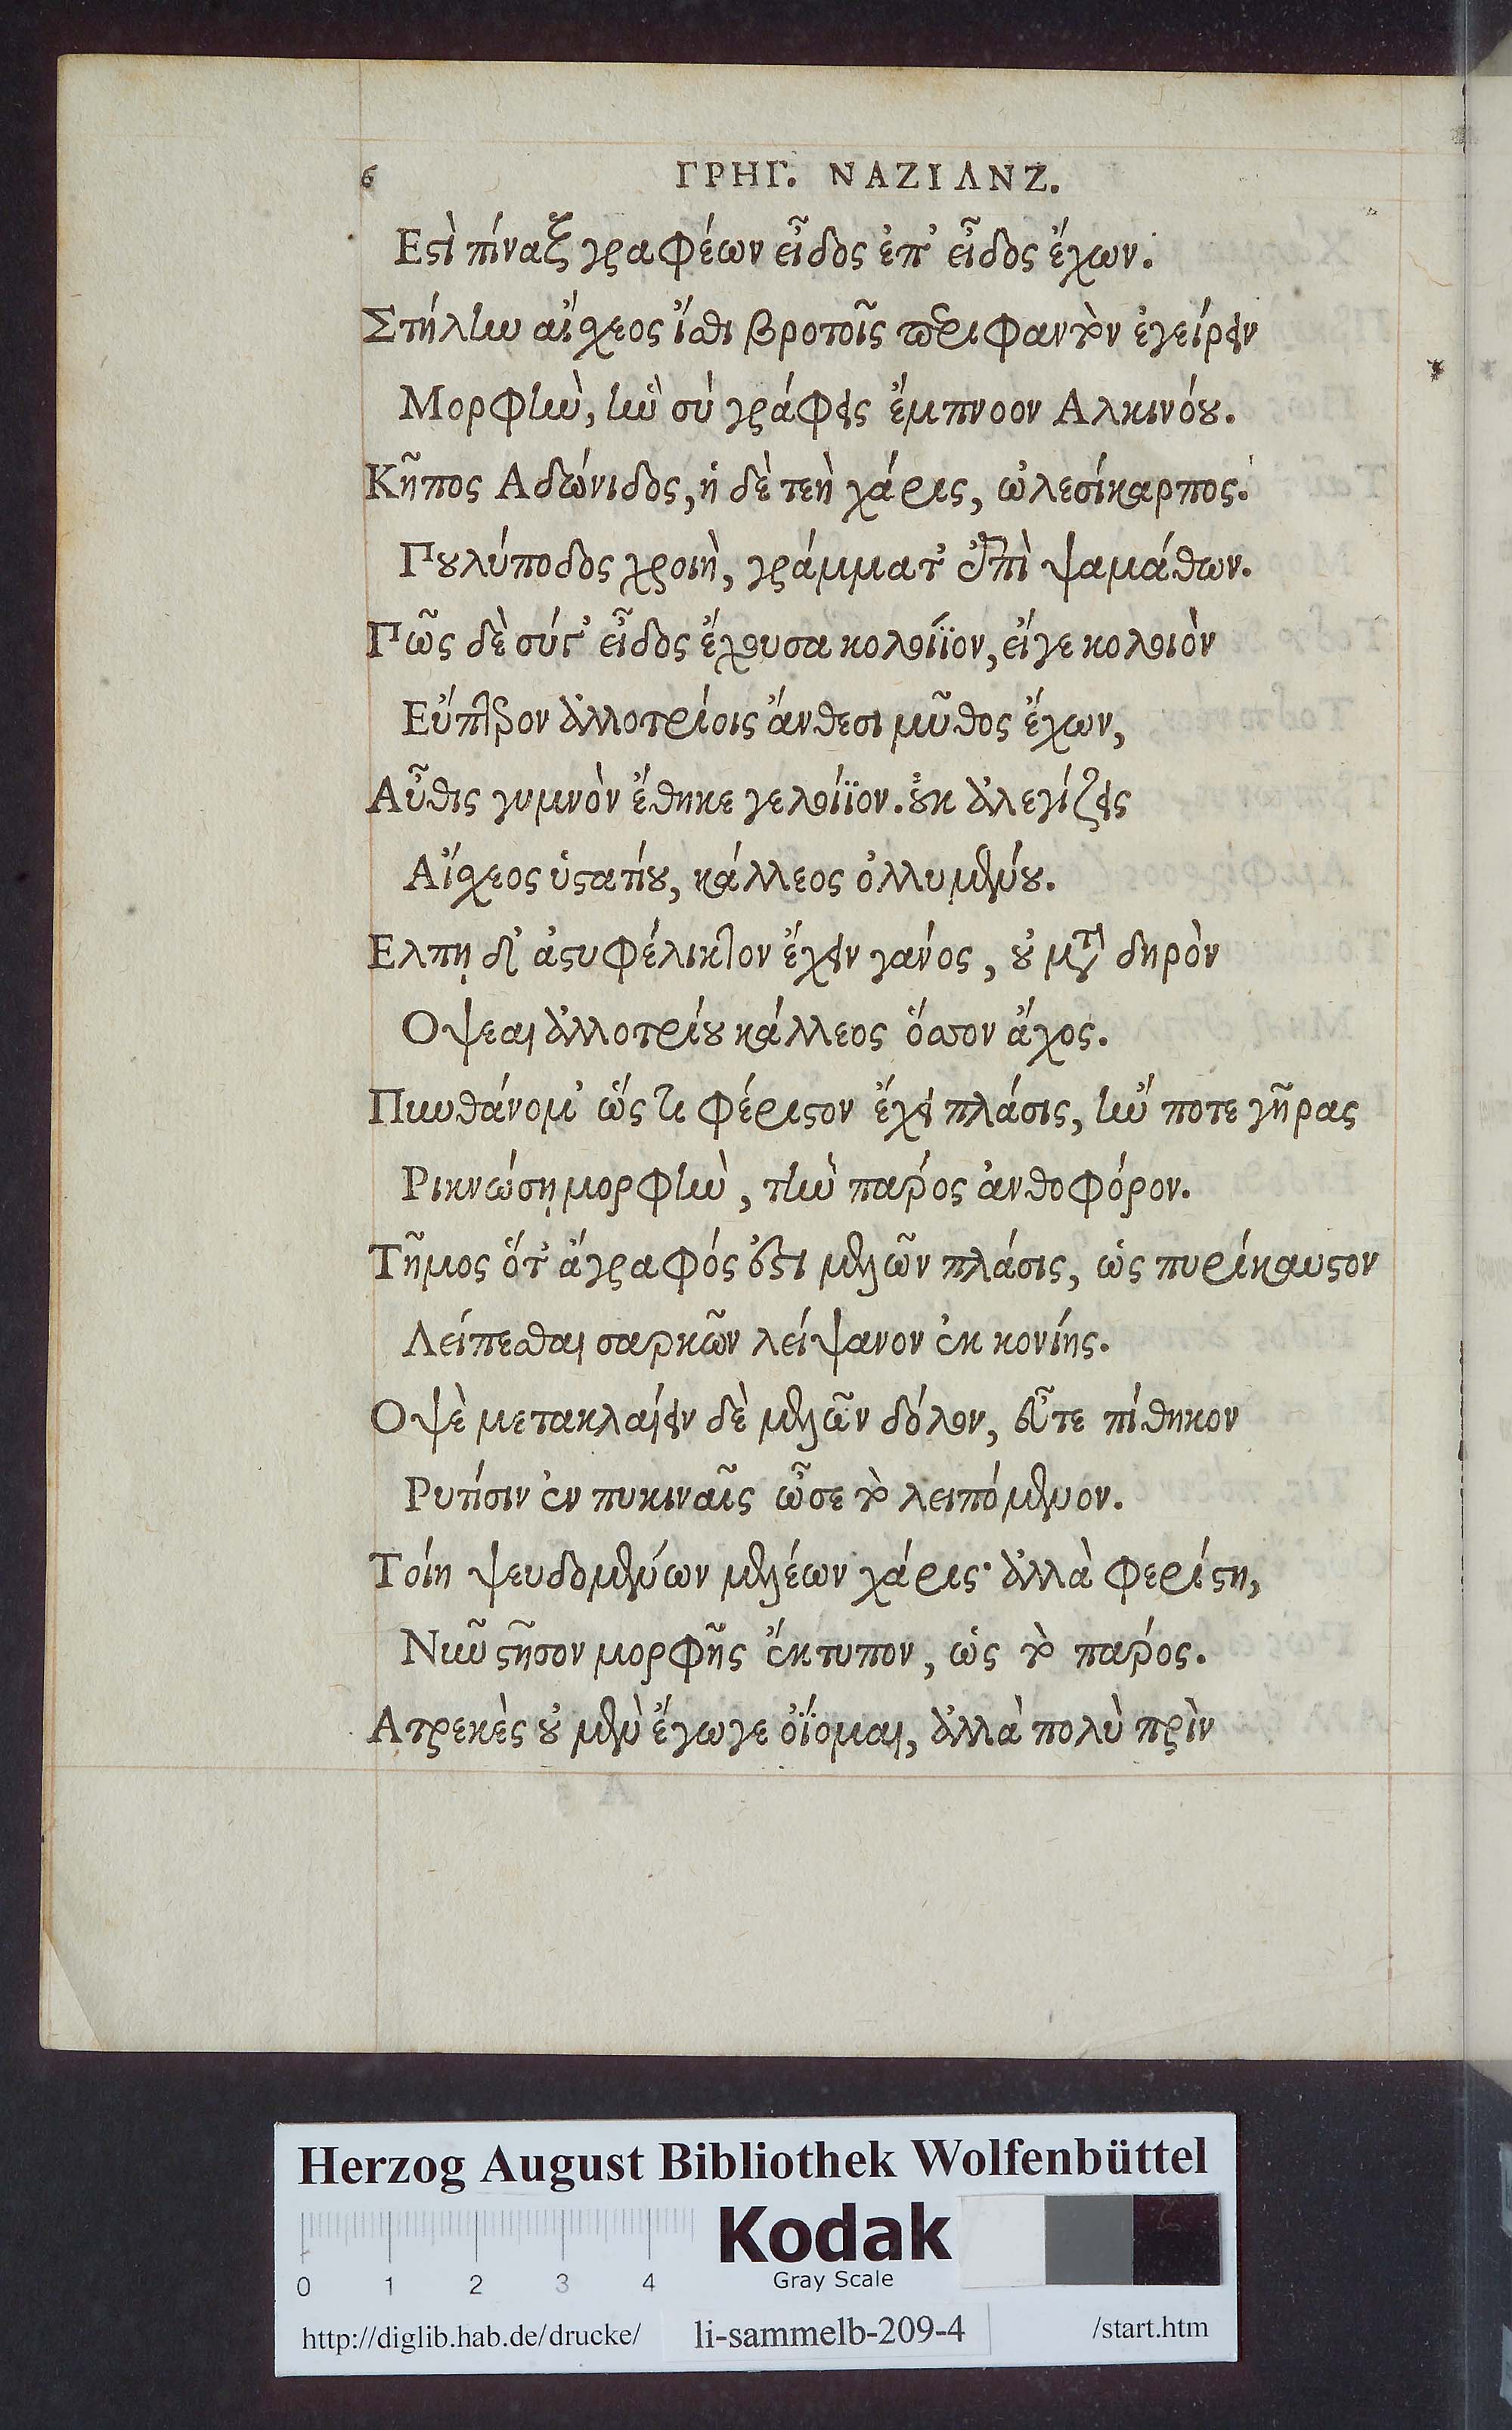 6 ΓΡΗΓ. ΝΑΖΙΑΝΖ.
Εστὶ πίναξ γραφέων εἶδος ἐπ᾽ εἶδος ἔχων.
Στήλην αἴσχεος ἴσθι βροτοῖς περιφαντὸν ἐγείρειν
Μορφὴν, ἣν σύ γράφεις ἔμπνοον Αλκινόου.
Κῆπος Αδώνιδος, ἡ δὲ τεὴ χάρις, ὠλεσίκαρπος.
Πουλύποδος χροιὴ, γράμματ᾽ ἐπὶ ψαμάθων.
Πῶς δὲ σύ τ᾽ εἶδος ἔχουσα κολοίϊον, εἴγε κολοιὸν
Εὔπτερον ἀλλοτρίοις ἄνθεσι μῦθος ἔχων,
Αὖθις γυμνὸν ἔθηκε γελοίϊον. οὐκ ἀλεγίζεις
Αἴσχεος ὑστατίου, κάλλεος ὀλλυμένου.
Ελπῃ δ᾽ ἀστυφέλικτον ἔχειν γάνος, οὐ μετὰ δηρὸν
Οψεαι ἀλλοτρίου κάλλεος ὅσσον ἄχος.
Πυνθάνομ᾽ ὥς τι φέριστον ἔχει πλάσις, ἤν ποτε γῆρας
Ρικνώσῃ μορφὴν, τὴν πάρος ἀνθοφόρον.
Τῆμος ὅτ᾽ ἄγραφός ἐστι μελῶν πλάσις, ὡς πυρίκαυστον
Λείπεσθαι σαρκῶν λείψανον ἐκ κονίης.
Οψὲ μετακλαίειν δὲ μελῶν δόλον, εὖτε πίθηκον
Ρυτίσιν ἐν πυκιναῖς ὦσε τὸ λειπόμενον.
Τοίη ψευδομένων μελέων χάρις· ἀλλὰ φερίστη,
Νῦν στῆσον μορφῆς ἔκτυπον, ὡς τὸ πάρος.
Ατρεκὲς οὐ μὲν ἔγωγε ὀΐομαι, ἀλλὰ πολὺ πρὶν
Herzog August Bibliothek Wolfenbüttel
0 1 2 3 4
Kodak
Gray Scale
http://diglib.hab.de/drucke/ li-sammelb-209-4 /start.htm